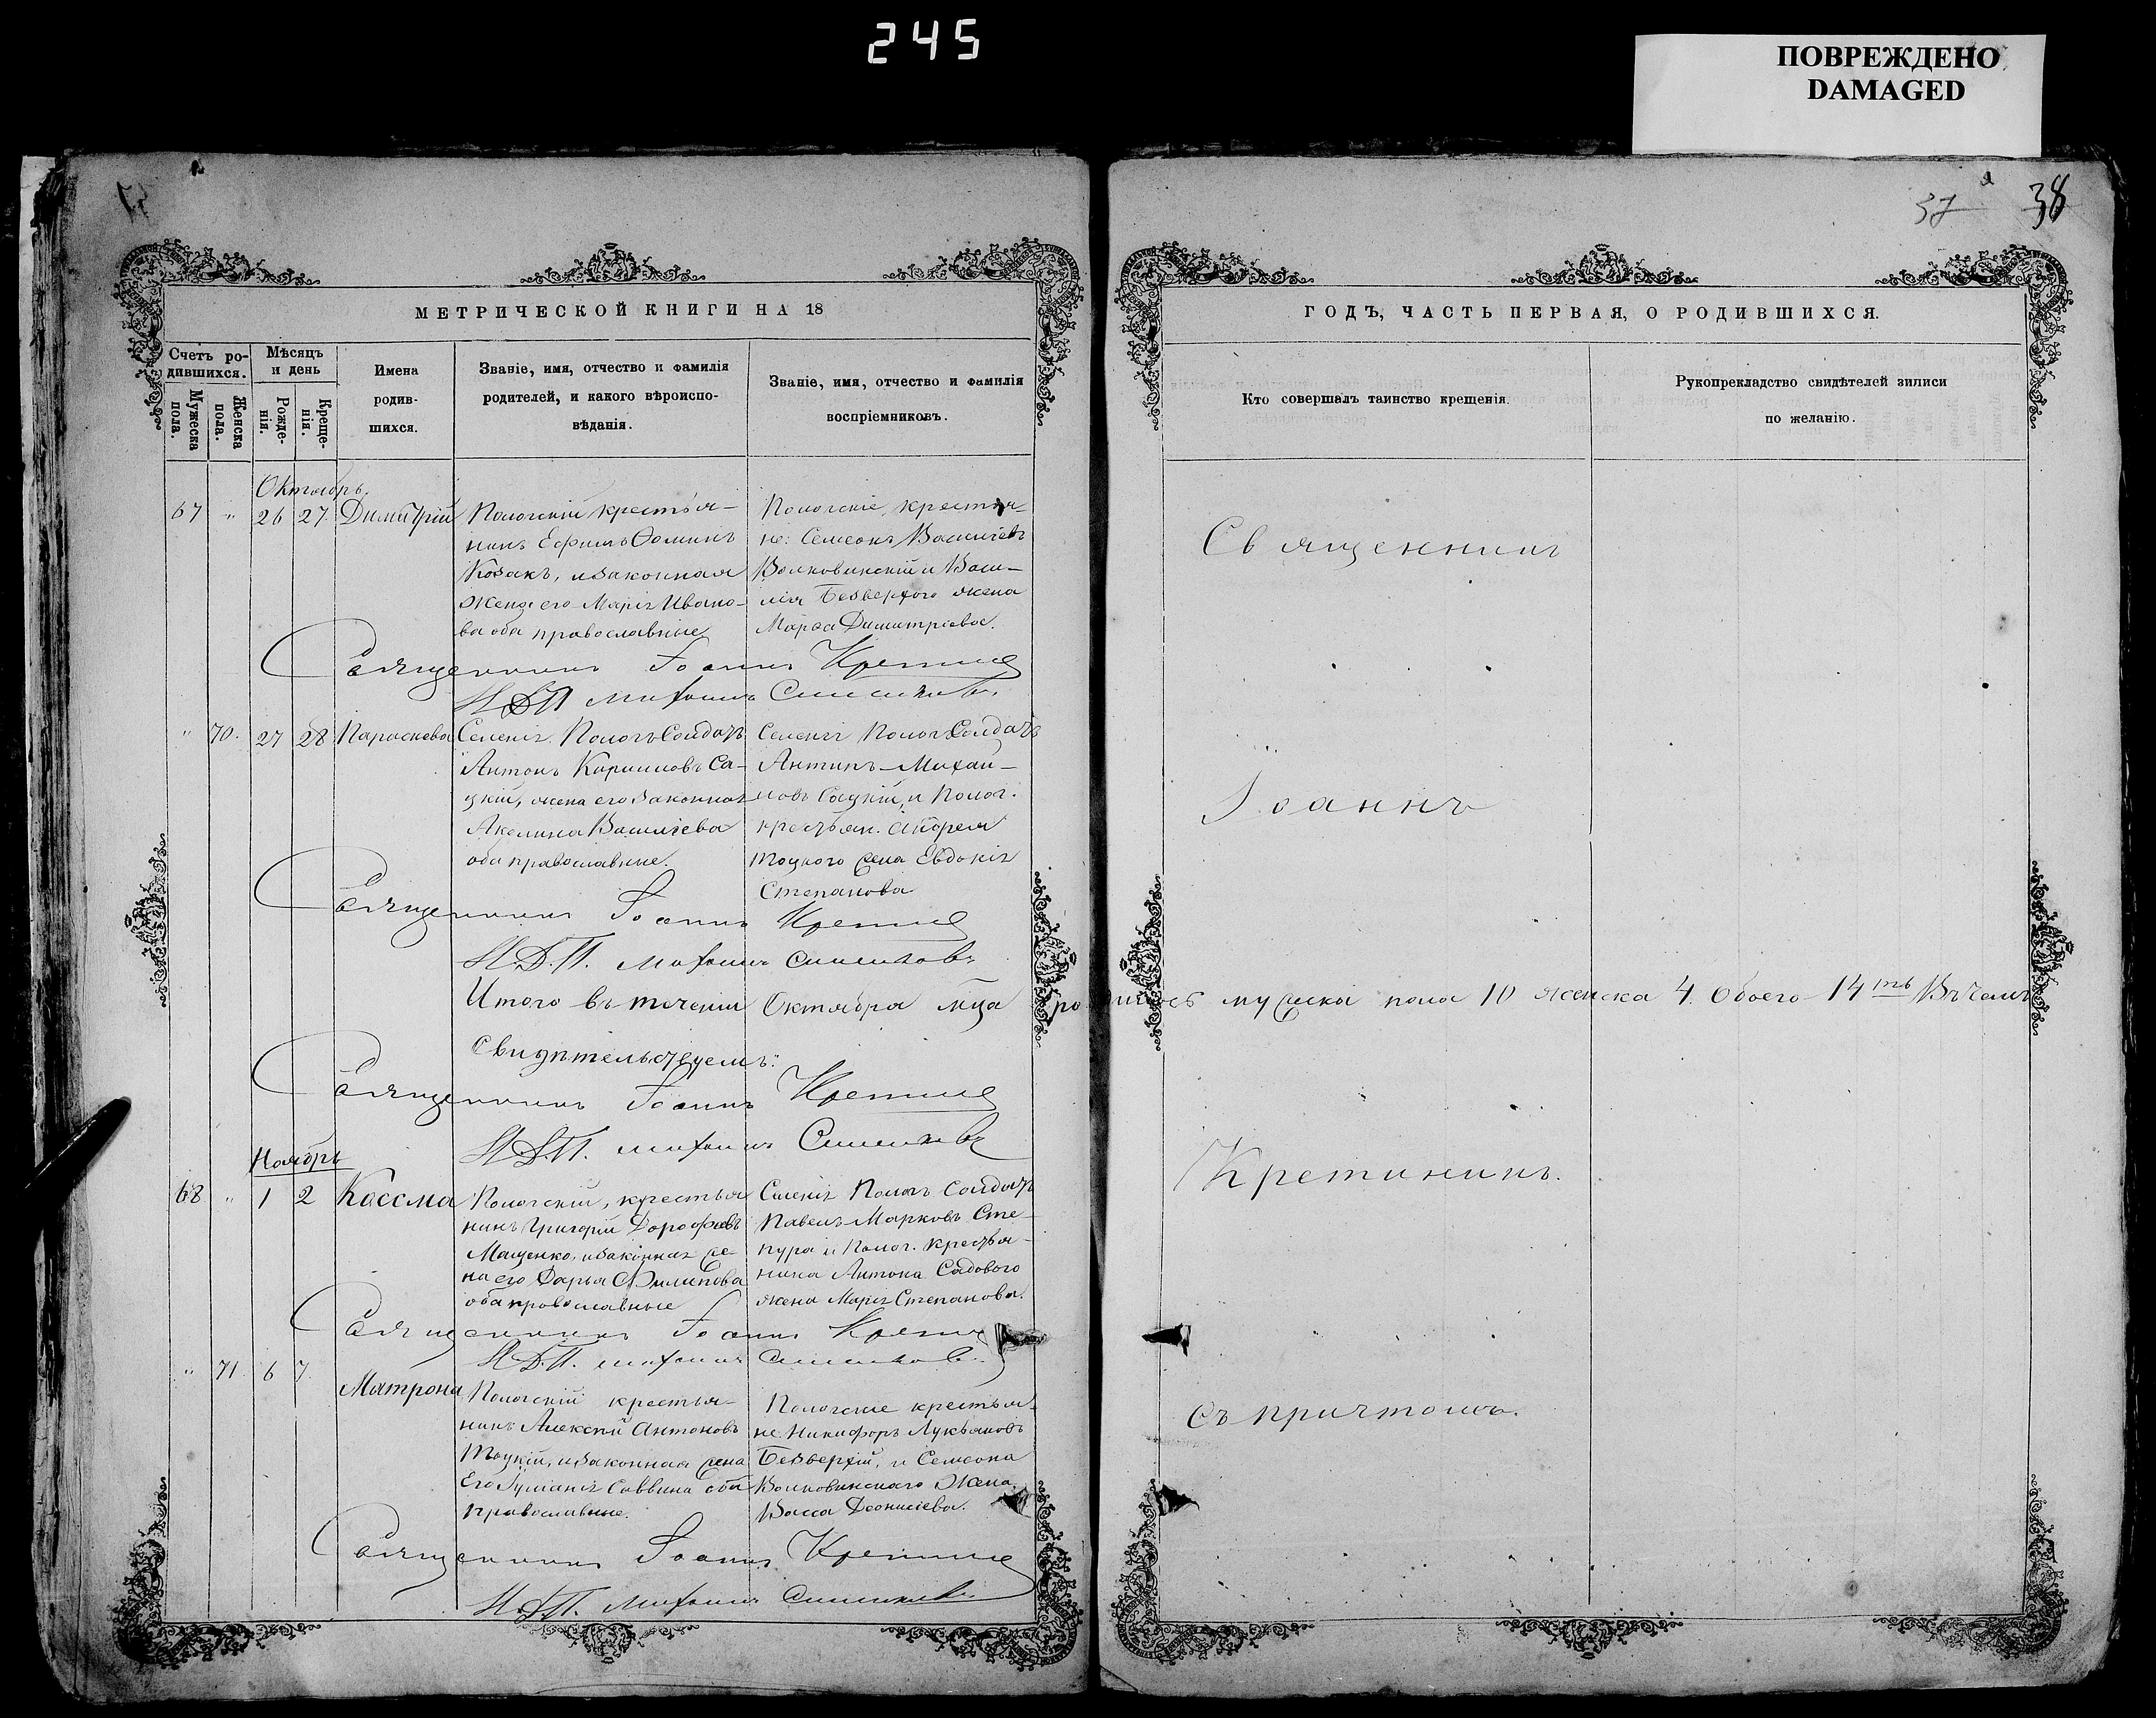 245
ПОВРЕЖДЕНО
DAMAGED
37 38
МЕТРИЧЕСКОЙ КНИГИ НА 18
Счетъ ро-
дившихся.
Мужеска
пола.
Женска
пола.
Мѣсяцъ
и день
Рожде-
нія.
Креще-
нія.
Имена
родив-
шихся.
Званіе, имя, отчество и фамилія
родителей, и какого вѣроиспо-
вѣданія.
Званіе, имя, отчество и фамилія
воспріемниковъ.
Октябрь.
67 " 26 27 Димитрій
Пологскій крестья-
нинъ Ефимъ Ѳоминъ
Козакъ, и законная
жена его Марія Ивано-
ва оба православные
Пологскіе крестья-
не: Семеонъ Василіевъ
Волковинскій и Васи-
лія Безверхого жена
Марѳа Димитріева.
Священникъ Іоаннъ
И.Д.П. Михаилъ
" 70. 27 28 Параскева
Селенія Пологъ Солдатъ
Антонъ Кирилловъ Са-
цкій, жена его законная
Акелина Василіева
оба православные.
Селенія Пологъ Солдатъ
Антипъ Михаи-
ловъ Сацкій, и Полог.
крестьян. Андрея
Тоцкого жена Евдокія
Степанова
Священникъ Іоаннъ
И.Д.П. Михаилъ
Итого въ теченіи Октября м-ца родилось мужска пола 10 женска 4. Обоего 14ть Въ чемъ
Свидѣтельствуемъ:
Священникъ Іоаннъ
И.Д.П. Михаилъ
Ноябрь
68 " 1 2 Коссма
Пологскій, крестья
нинъ Григорій Дорофѣевъ
Мащенко, и законная же-
на его Дарья Филипова
оба православные
Селенія Пологъ Солдатъ
Павелъ Марковъ Сте-
пура и Полог. крестья-
нина Антона Садового
жена Марія Степанова.
Священникъ Іоаннъ
И.Д.П. Михаилъ
" 71. 6 7. Матрона
Пологскій крестья-
нинъ Алексѣй Антоновъ
Тоцкій, и законная жена
Его Іуліанія Саввина оба
православные.
Пологскіе крестья-
не Никифоръ Лукьяновъ
Безверхій, и Семеона
Волковинскаго Жена
Васса Діонисіева.
Священникъ Іоаннъ
И.Д.П. Михаилъ
ГОДЪ, ЧАСТЬ ПЕРВАЯ, О РОДИВШИХСЯ.
Кто совершалъ таинство крещенія.
Рукоприкладство свидѣтелей записи
по желанію.
Священникъ
Іоаннъ
Кретининъ.
Съ причтомъ.